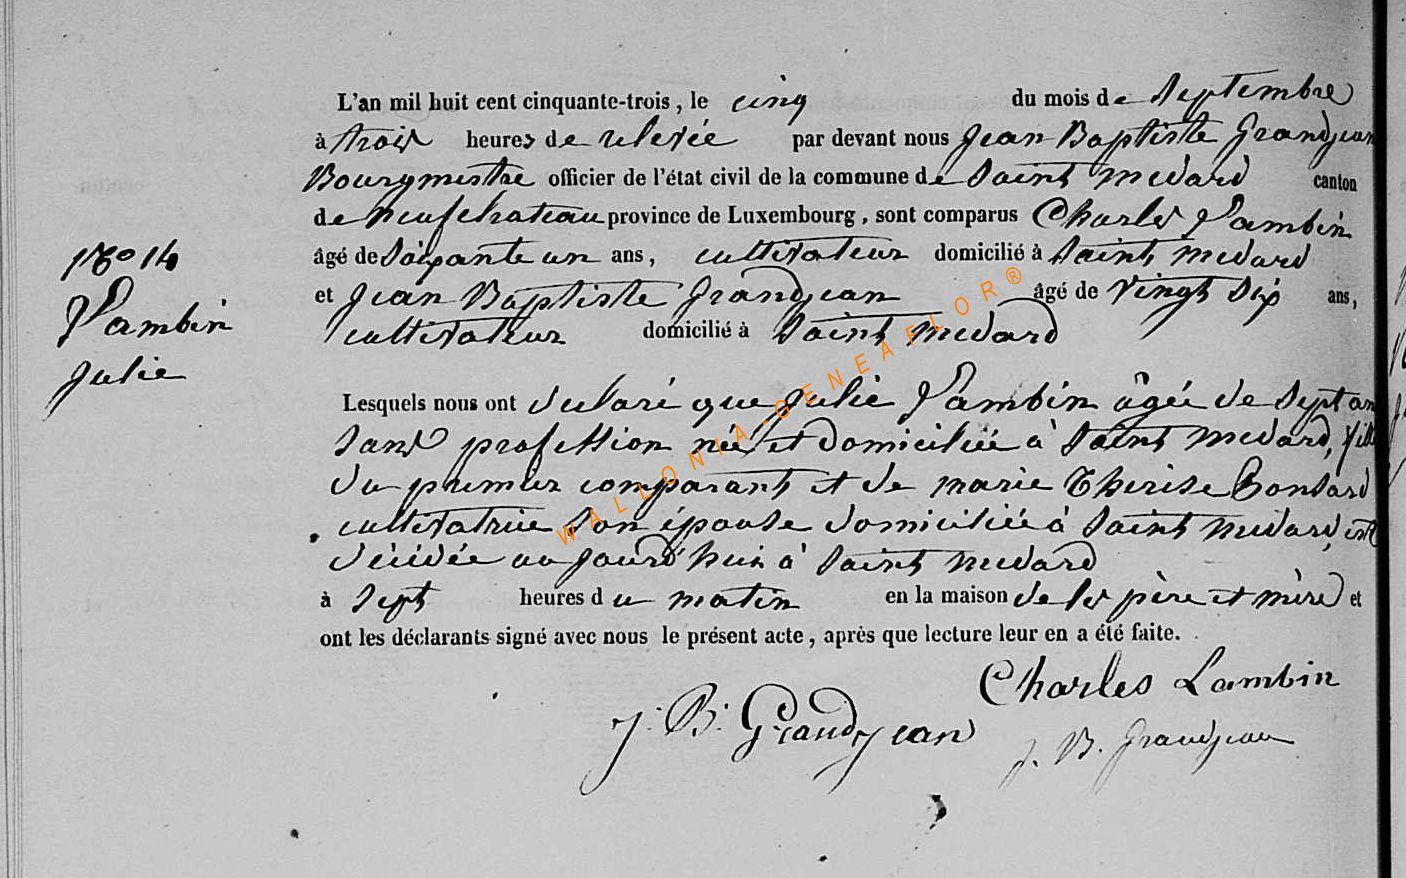 L'an mil huit cent cinquante-trois, le cinq du mois de Septembre
à trois heures de relevée par devant nous Jean Baptiste Grandjean
Bourgmestre officier de l'état civil de la commune de Saint medard canton
de neufchateau province de Luxembourg, sont comparus Charles Lambin
âgé de Soixante un ans, cultivateur domicilié à Saint medard
et Jean Baptiste Grandjean âgé de vingt Six ans,
cultivateur domicilié à Saint medard
N° 14
Lambin
Julie
Lesquels nous ont declaré que Julie Lambin âgée de Sept ans
Sans profession née et domiciliée à Saint medard, fille
du premier comparant et de marie Thérèse Bonsard
cultivatrice Son épouse domiciliée à Saint medard, est
décédée au jourd'hui à Saint medard
à Sept heures du matin en la maison de ses père et mère et
ont les déclarants signé avec nous le présent acte, après que lecture leur en a été faite.
Charles Lambin
J. B. Grandjean
J. B. Grandjean
WALLONIA-GENEAFLOR®